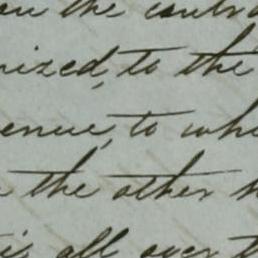 on the contra
nized, to the
enue, to who
the other h
is all over t